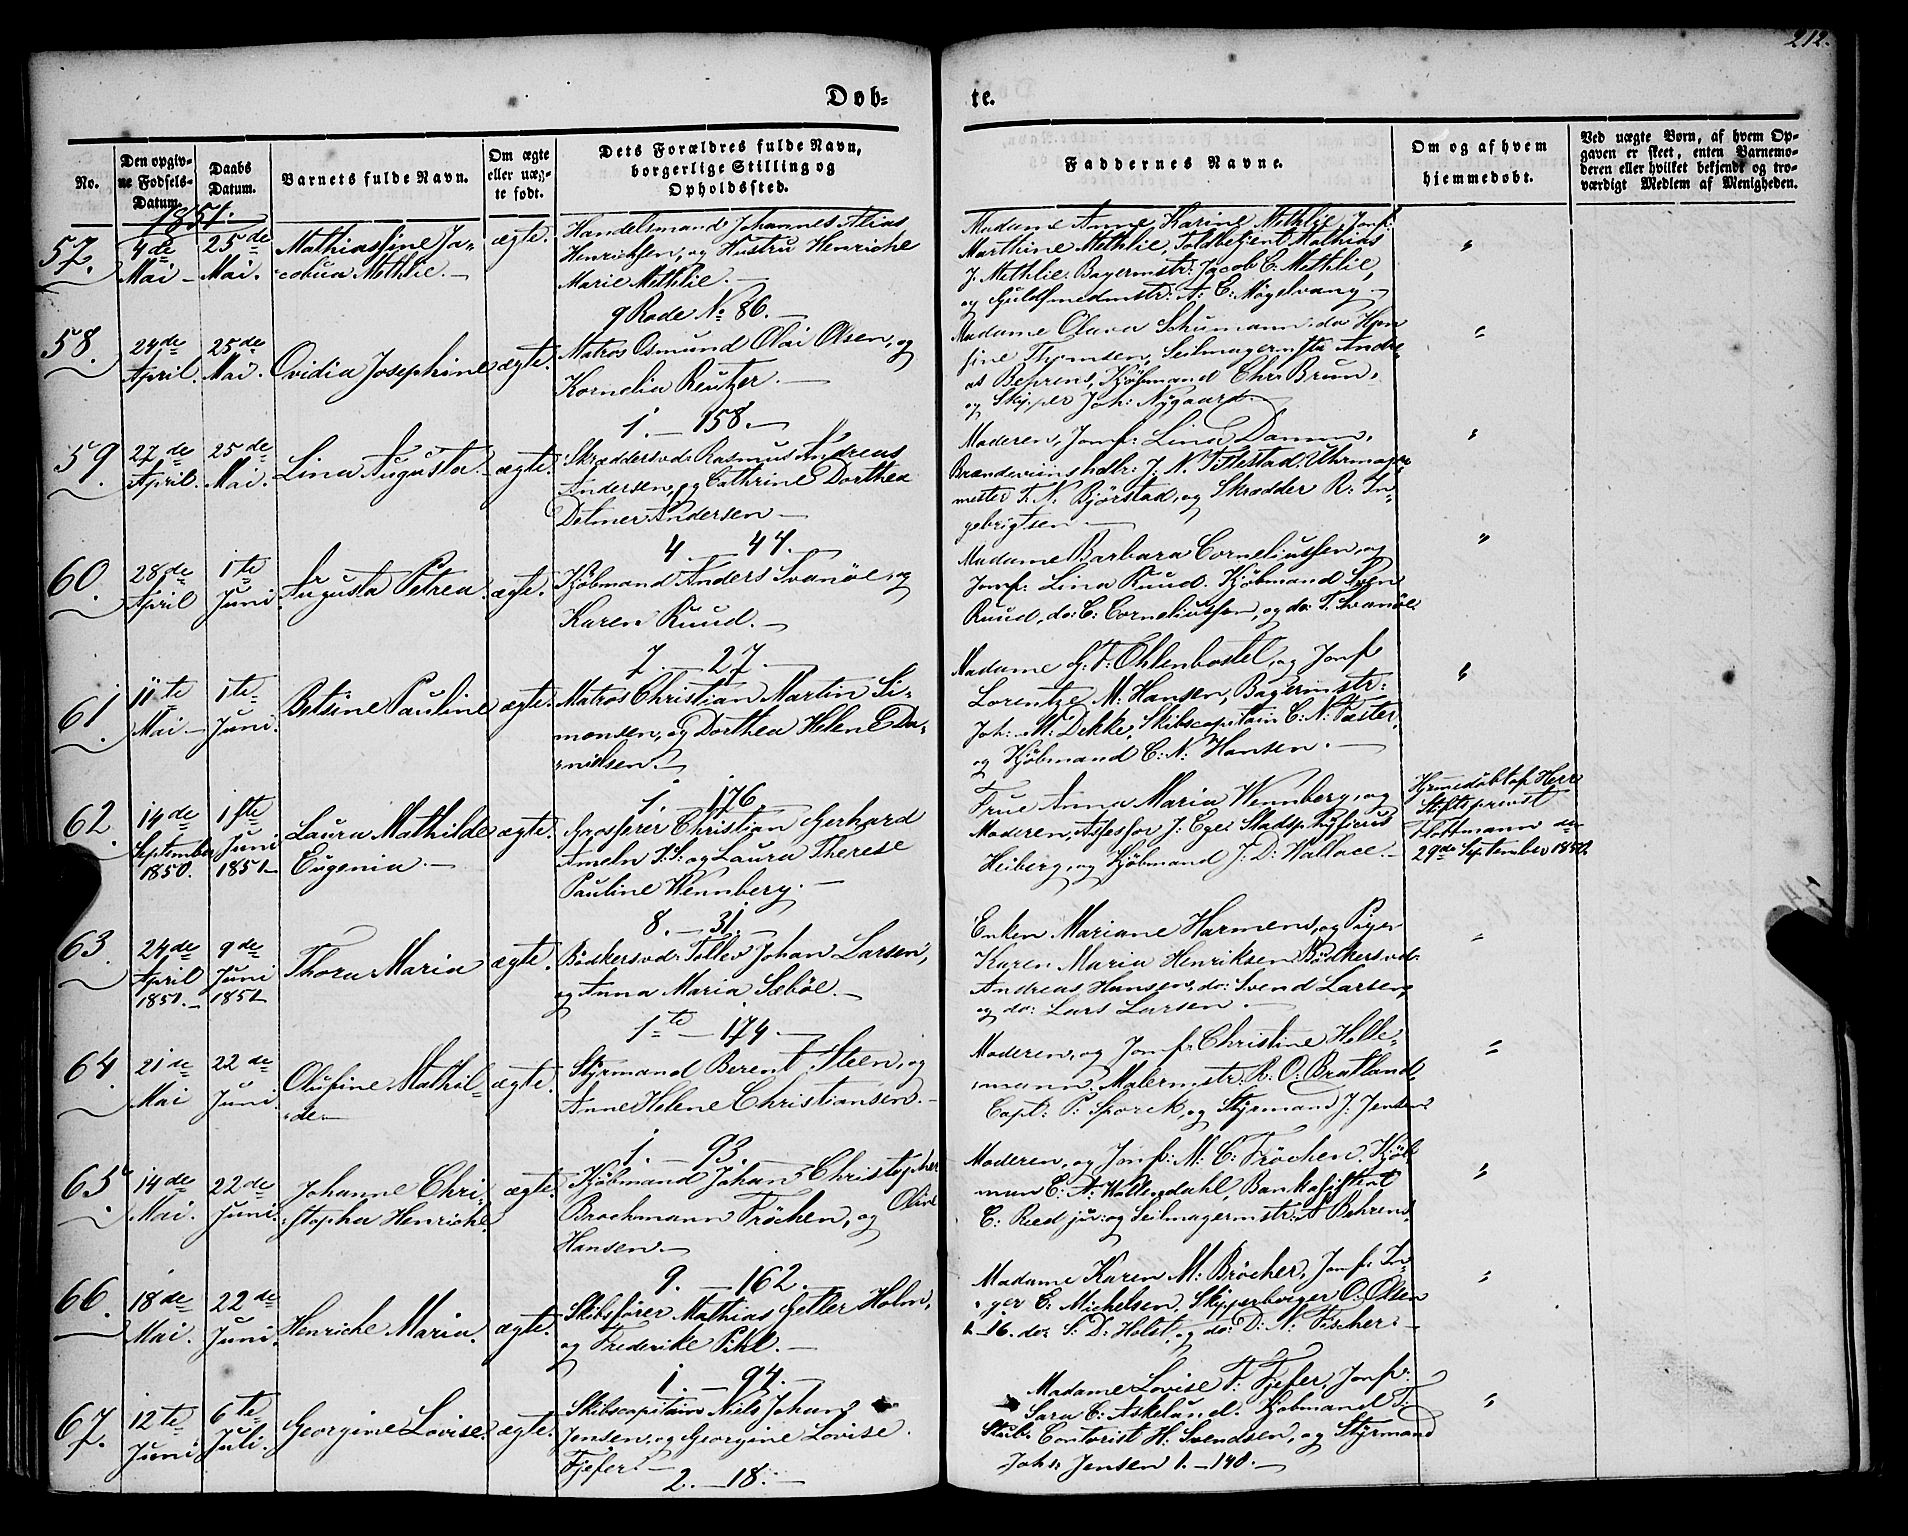 212.
Døb- te.
No.
Den opgivne Fødsels-Datum.
Daabs Datum.
Barnets fulde Navn.
Om ægte eller uægte født.
Dets Forældres fulde Navn, borgerlige Stilling og Opholdssted.
Faddernes Navne.
Om og af hvem hjemmedøbt.
Ved uægte Børn, af hvem Opgaven er skeet, enten Barnemoderen eller hvilket bekjendt og troværdigt Medlem af Menigheden.
1851.
57.
4de Mai
25de Mai.
Mathiassine Ja-
cobua Methlie.
ægte.
Handelsmand Johannes Alias
Henriksen, og Hustru Henriche
Marie Methlie.
9 Rode No 86.
Madame Anne Karine Methlie, Jomf:
Marthine Methlie, Toldbetjent Mathias
J. Methlie, Bagermstr: Jacob C: Methlie,
og Guldsmedmstr: A: C: Møgelvang
"
58.
24de April.
25de Mai.
Ovidia Josephine
ægte.
Matros Osmund Olai Olsen, og
Kornelia Reutzer.
1. — 158.
Madame Olava Schumann, do
Thomsen, Seilmagermstr Andre-
as Behrens, Kjøbmand Chr: Brun,
og Skipper Joh: Nygaard.
"
59.
27de April.
25de Mai.
Lina Augusta.
ægte.
Skræddersvd: Rasmus Andreas
Andersen, og Cathrine Dorthea
Detmer Andersen
4. — 47.
Moderen, Jomf: Lina Damm,
Brændeviinshdlr: J. N. Tillestad, Uhrmager-
mester T. N: Bjørstad, og Skrædder R: In-
gebrigtsen
"
60.
28de April
1te Juni
Augusta Petrea
ægte.
Kjøbmand Anders Svanøe, og
Karen Ruud.
7. — 27.
Madame Barbara Corneliussen, og
Jomf: Lina Ruud. Kjøbmand Sven
Ruud, do: C: Corneliussen, og do: T. Svanøe
"
61.
11te Mai
1te Juni.
Betsine Pauline
ægte.
Matros Christian Martin Si-
monsen, og Dorthea Helene Da-
nielsen.
1. 176.
Madame G: T: Ohlenbostel, og Jomf:
Lorentze M: Hansen, Bagermstr:
Joh: M: Dekke, Skibscapitain C: N: Fæster,
og Kjøbmand C: N: Hansen.
"
62.
14de September 1850.
1ste Juni 1851
Laura Mathilde
Eugenia.
ægte.
Grosserer Christian Gerhard
Ameln J: S: og Laura Therese
Pauline Wennberg.
8. — 31.
Frue Anna Maria Wennberg, og
Moderen, Assessor J: Eger Stadsphysicus
Heiberg, og Kjøbmand J: D: Wallace.
Hjemedøbt af Herr
Stiftsprovst
den
29de September 1850.
63.
24de April 1851.
9de Juni 1851
Thora Maria
ægte.
Bødkersvd: Tollev Johan Larsen,
og Anna Maria Sæbøe.
1te — 174.
Enken Mariane Harmens, og Piger
Karen Maria Henriksen Bødkersvd:
Andreas Hansen, do: Svend Larsen,
og do: Lars Larsen.
"
64.
21de Mai
22de Juni.
Olufine Mathil-
de
ægte.
Styrmand Berent Steen, og
Anne Helene Christiansen.
1. — 93.
Moderen, og Jomf: Christine Helle-
mann, Malermstr: R. O: Bratland,
Capt: P: Sporck, og Styrmand J: Jensen
"
65.
14de Mai.
22de Juni.
Johanne Chri-
stopha Henriche.
ægte.
Kjøbmand Johan Christopher
Brochmann Frøchen, og Oline
Hansen.
9. — 162.
Moderen, og Jomf: M: C: Frøchen, Kjøb-
man C: A: Wallendahl, Bankassistent
C: Reed jun: og Seilmagermstr: A Behrens.
"
66.
18de Mai.
22de Juni.
Henriche Maria.
ægte.
Skibsfører Mathias Geller Holm,
og Frederike Pihl.
1. — 94.
Madame Karen M: Brøcher, Jomf: In-
ger E: Michelsen, Skipperborger O: Olsen
1—16. do: S: D: Holst, og do: D: N: Fischer.
"
67.
12te Juni.
6te Juli.
Georgine Lovise.
ægte.
Skibscapitain Niels Johan
Jensen, og Georgine Lovise
Fjefer.
2. — 18.
Madame Lovise F: Fjefer, Jomf:
Sara C: Askelund. Kjøbmand T:
Contorist H: Svendsen, og Styrmand
Johs: Jensen 1. — 140.
"